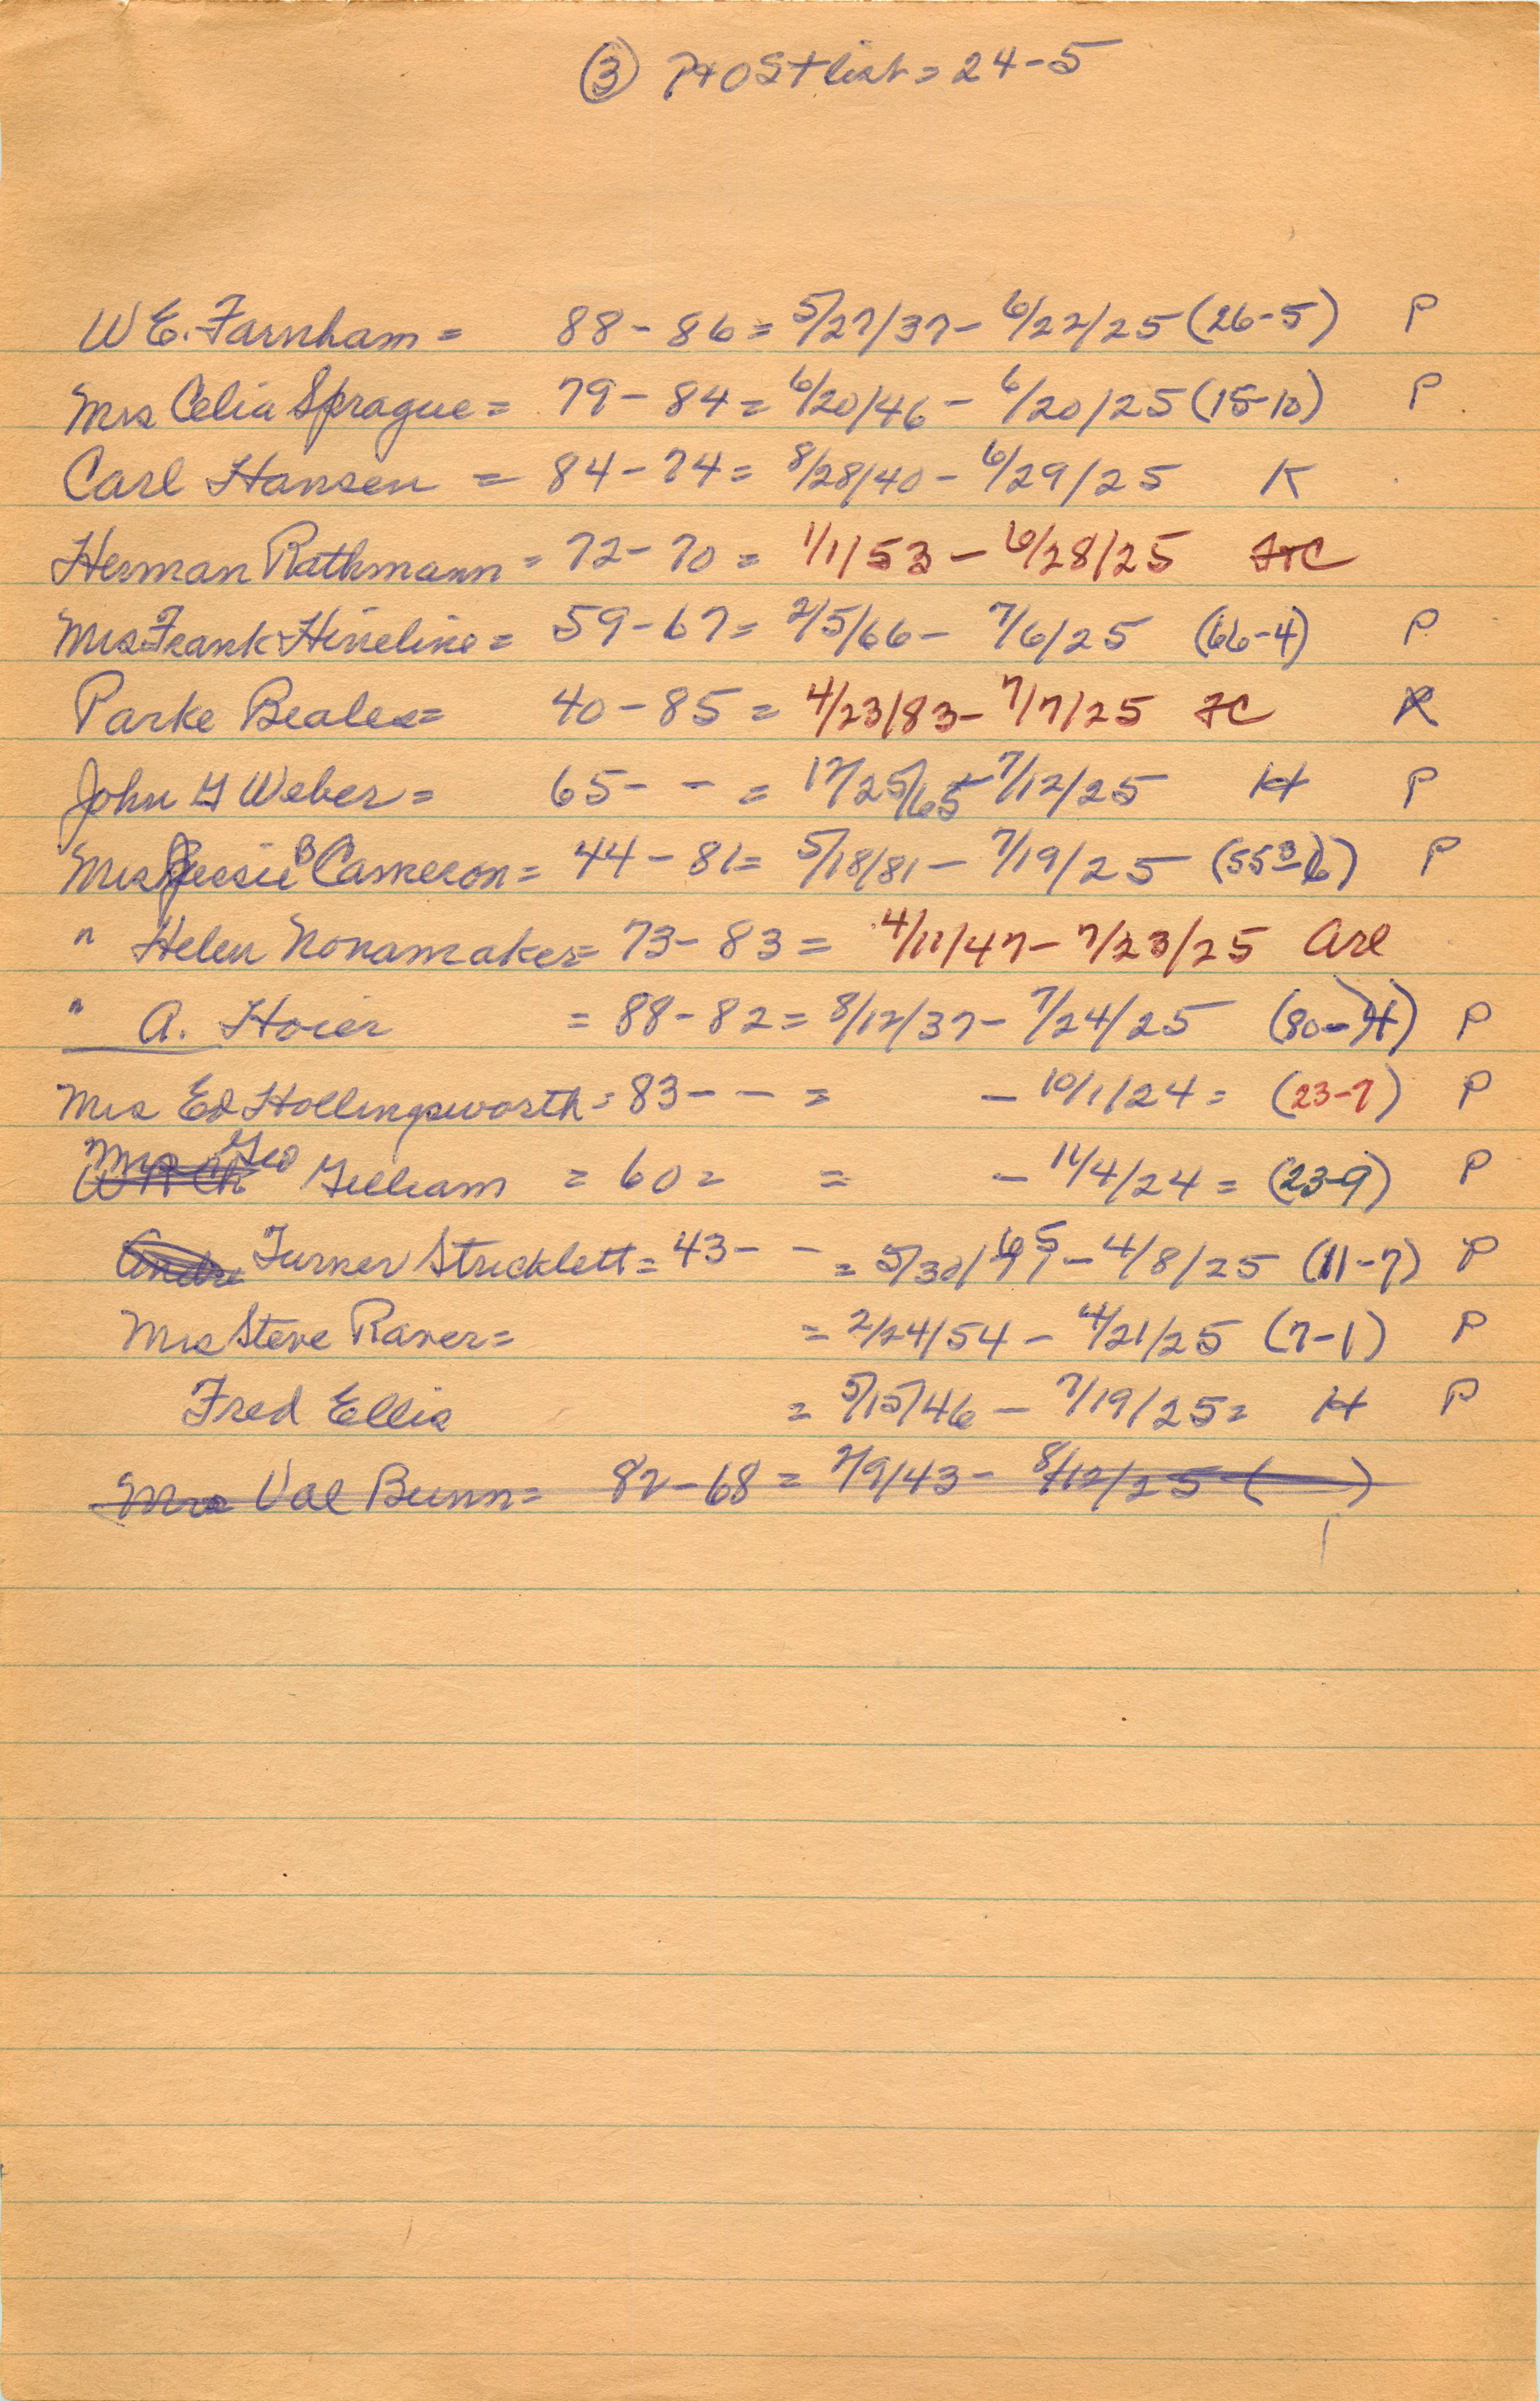 ③ P+OST list = 24-5
W E. Farnham = 88-86 = 5/27/37 - 6/22/25 (26-5) P
Mrs Celia Sprague = 79-84 = 6/20/46 - 6/20/25 (15-10) P
Carl Hansen = 84-74 = 8/28/40 - 6/29/25 K
Herman Rathmann = 72-70 = 1/1/53 - 6/28/25
Mrs Frank Hineline = 59-67 = 2/5/66 - 7/6/25 (66-4) P
Parke Beales = 40-85 = 4/23/83 - 7/7/25 FC
John G Weber = 65- - = 12/25/65 7/12/25 H P
Mrs Jessie B Cameron = 44-81 = 5/18/81 - 7/19/25 P
" Helen Nonamaker = 73-83 = 4/11/47 - 7/23/25 Arl
" A. Hoier = 88-82 = 8/12/37 - 7/24/25 (80-4) P
Mrs Ed Hollingsworth = 83- - = - 10/1/24 = (23-7) P
Mrs Geo Gilliam = 60 = = - 11/4/24 = (23-9) P
Turner Stricklett = 43- - = 5/30/ - 4/8/25 (11-7) P
Mrs Steve Raver = = 2/24/54 - 4/21/25 (7-1) P
Fred Ellis = 5/15/46 - 7/19/25 = H P
Mrs Val Bunn = 82-68 = 2/9/43 - 8/12/25 ( )